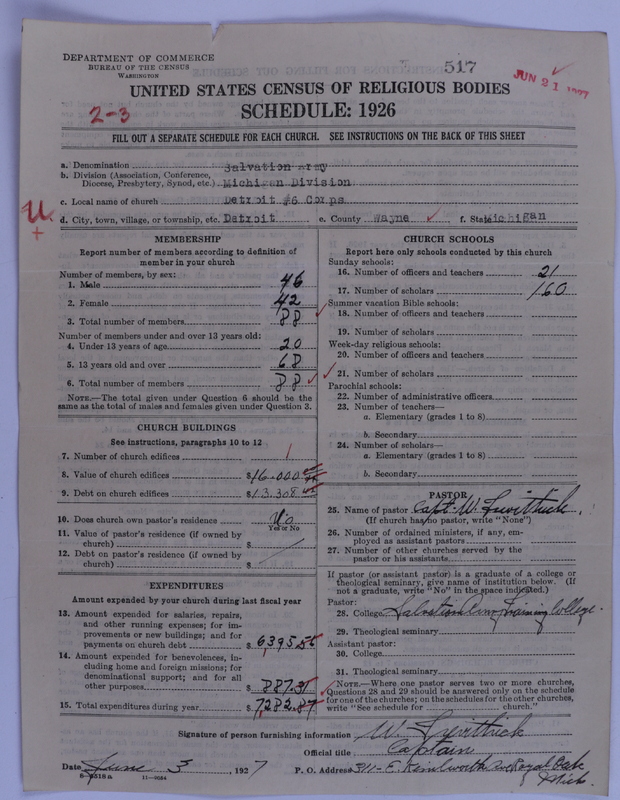 DEPARTMENT OF COMMERCE
BUREAU OF THE CENSUS
WASHINGTON
517
JUN 21 1927
UNITED STATES CENSUS OF RELIGIOUS BODIES
2-3
SCHEDULE: 1926
FILL OUT A SEPARATE SCHEDULE FOR EACH CHURCH. SEE INSTRUCTIONS ON THE BACK OF THIS SHEET
a. Denomination Salvation Army
b. Division (Association, Conference, Diocese, Presbytery, Synod, etc.) Michigan Division
c. Local name of church Detroit #6 Corps
d. City, town, village, or township, etc. Detroit e. County Wayne f. State Michigan
U
+
MEMBERSHIP
Report number of members according to definition of member in your church
Number of members, by sex:
1. Male 46
2. Female 42
3. Total number of members 88
Number of members under and over 13 years old:
4. Under 13 years of age 20
5. 13 years old and over 68
6. Total number of members 88
NOTE.—The total given under Question 6 should be the same as the total of males and females given under Question 3.
CHURCH BUILDINGS
See instructions, paragraphs 10 to 12
7. Number of church edifices 1
8. Value of church edifices $16-000
9. Debt on church edifices $13.308
10. Does church own pastor's residence No
Yes or No
11. Value of pastor's residence (if owned by church) $
12. Debt on pastor's residence (if owned by church) $
EXPENDITURES
Amount expended by your church during last fiscal year
13. Amount expended for salaries, repairs, and other running expenses; for improvements or new buildings; and for payments on church debt $ 6395.56
14. Amount expended for benevolences, including home and foreign missions; for denominational support; and for all other purposes $ 887.31
15. Total expenditures during year $ 7282.87
CHURCH SCHOOLS
Report here only schools conducted by this church
Sunday schools:
16. Number of officers and teachers 21
17. Number of scholars 160
Summer vacation Bible schools:
18. Number of officers and teachers
19. Number of scholars
Week-day religious schools:
20. Number of officers and teachers
21. Number of scholars
Parochial schools:
22. Number of administrative officers
23. Number of teachers—
a. Elementary (grades 1 to 8)
b. Secondary
24. Number of scholars—
a. Elementary (grades 1 to 8)
b. Secondary
PASTOR
25. Name of pastor Capt. W.
(If church has no pastor, write "None")
26. Number of ordained ministers, if any, employed as assistant pastors
27. Number of other churches served by the pastor or his assistants
If pastor (or assistant pastor) is a graduate of a college or theological seminary, give name of institution below. (If not a graduate, write "No" in the space indicated.)
Pastor:
28. College Salvation Army Training College.
29. Theological seminary
Assistant pastor:
30. College
31. Theological seminary
NOTE.—Where one pastor serves two or more churches, Questions 28 and 29 should be answered only on the schedule for one of the churches; on the schedules for the other churches, write "See schedule for ........ church."
Signature of person furnishing information W.
Official title Captain
Date June 3 1927 P. O. Address 311-E. Kenilworth Av Royal Oak
Mich.
11-9084